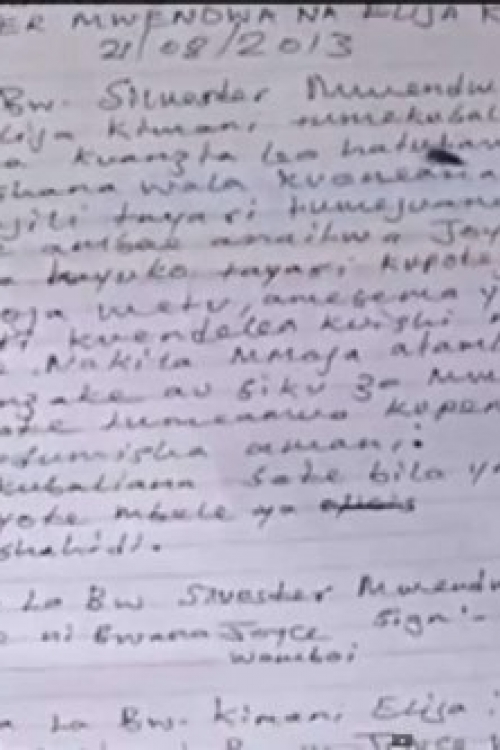 ER MWENDWA NA ELIJA K
21/08/2013
Bw. Silvester Mwendw
Elija Kimani tumekubal
a kuanzia leo hatutaw
shana wala kuoneana
ajili tayari tumejuana
e ambae anaitwa Joy
a hayuko tayari kupote
oja wetu, amesema y
kuendelea kuishi
e. Na kila mmoja atam
nzake au siku 30 Mw
ote tumeamuo kupen
dumisha amani.
kubaliana sote bila ya
yote mbele ya
shahidi.
La Bw Silvester Mwendw
o ni Bwana Joyce Sign:-
Wamboi
a La Bw. Kimani Elija :